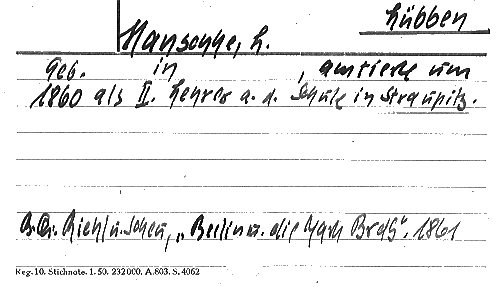 Lübben
Mansonge, h.
Geb. in , amtierte um
1860 als II. Lehrer a. d. Schule in Straupitz.
Riehl u. Scheu, „Berlin u. die Mark Brdbg". 1861
Reg. 10. Stichnote. 1. 50. 232000. A. 803. S. 4062